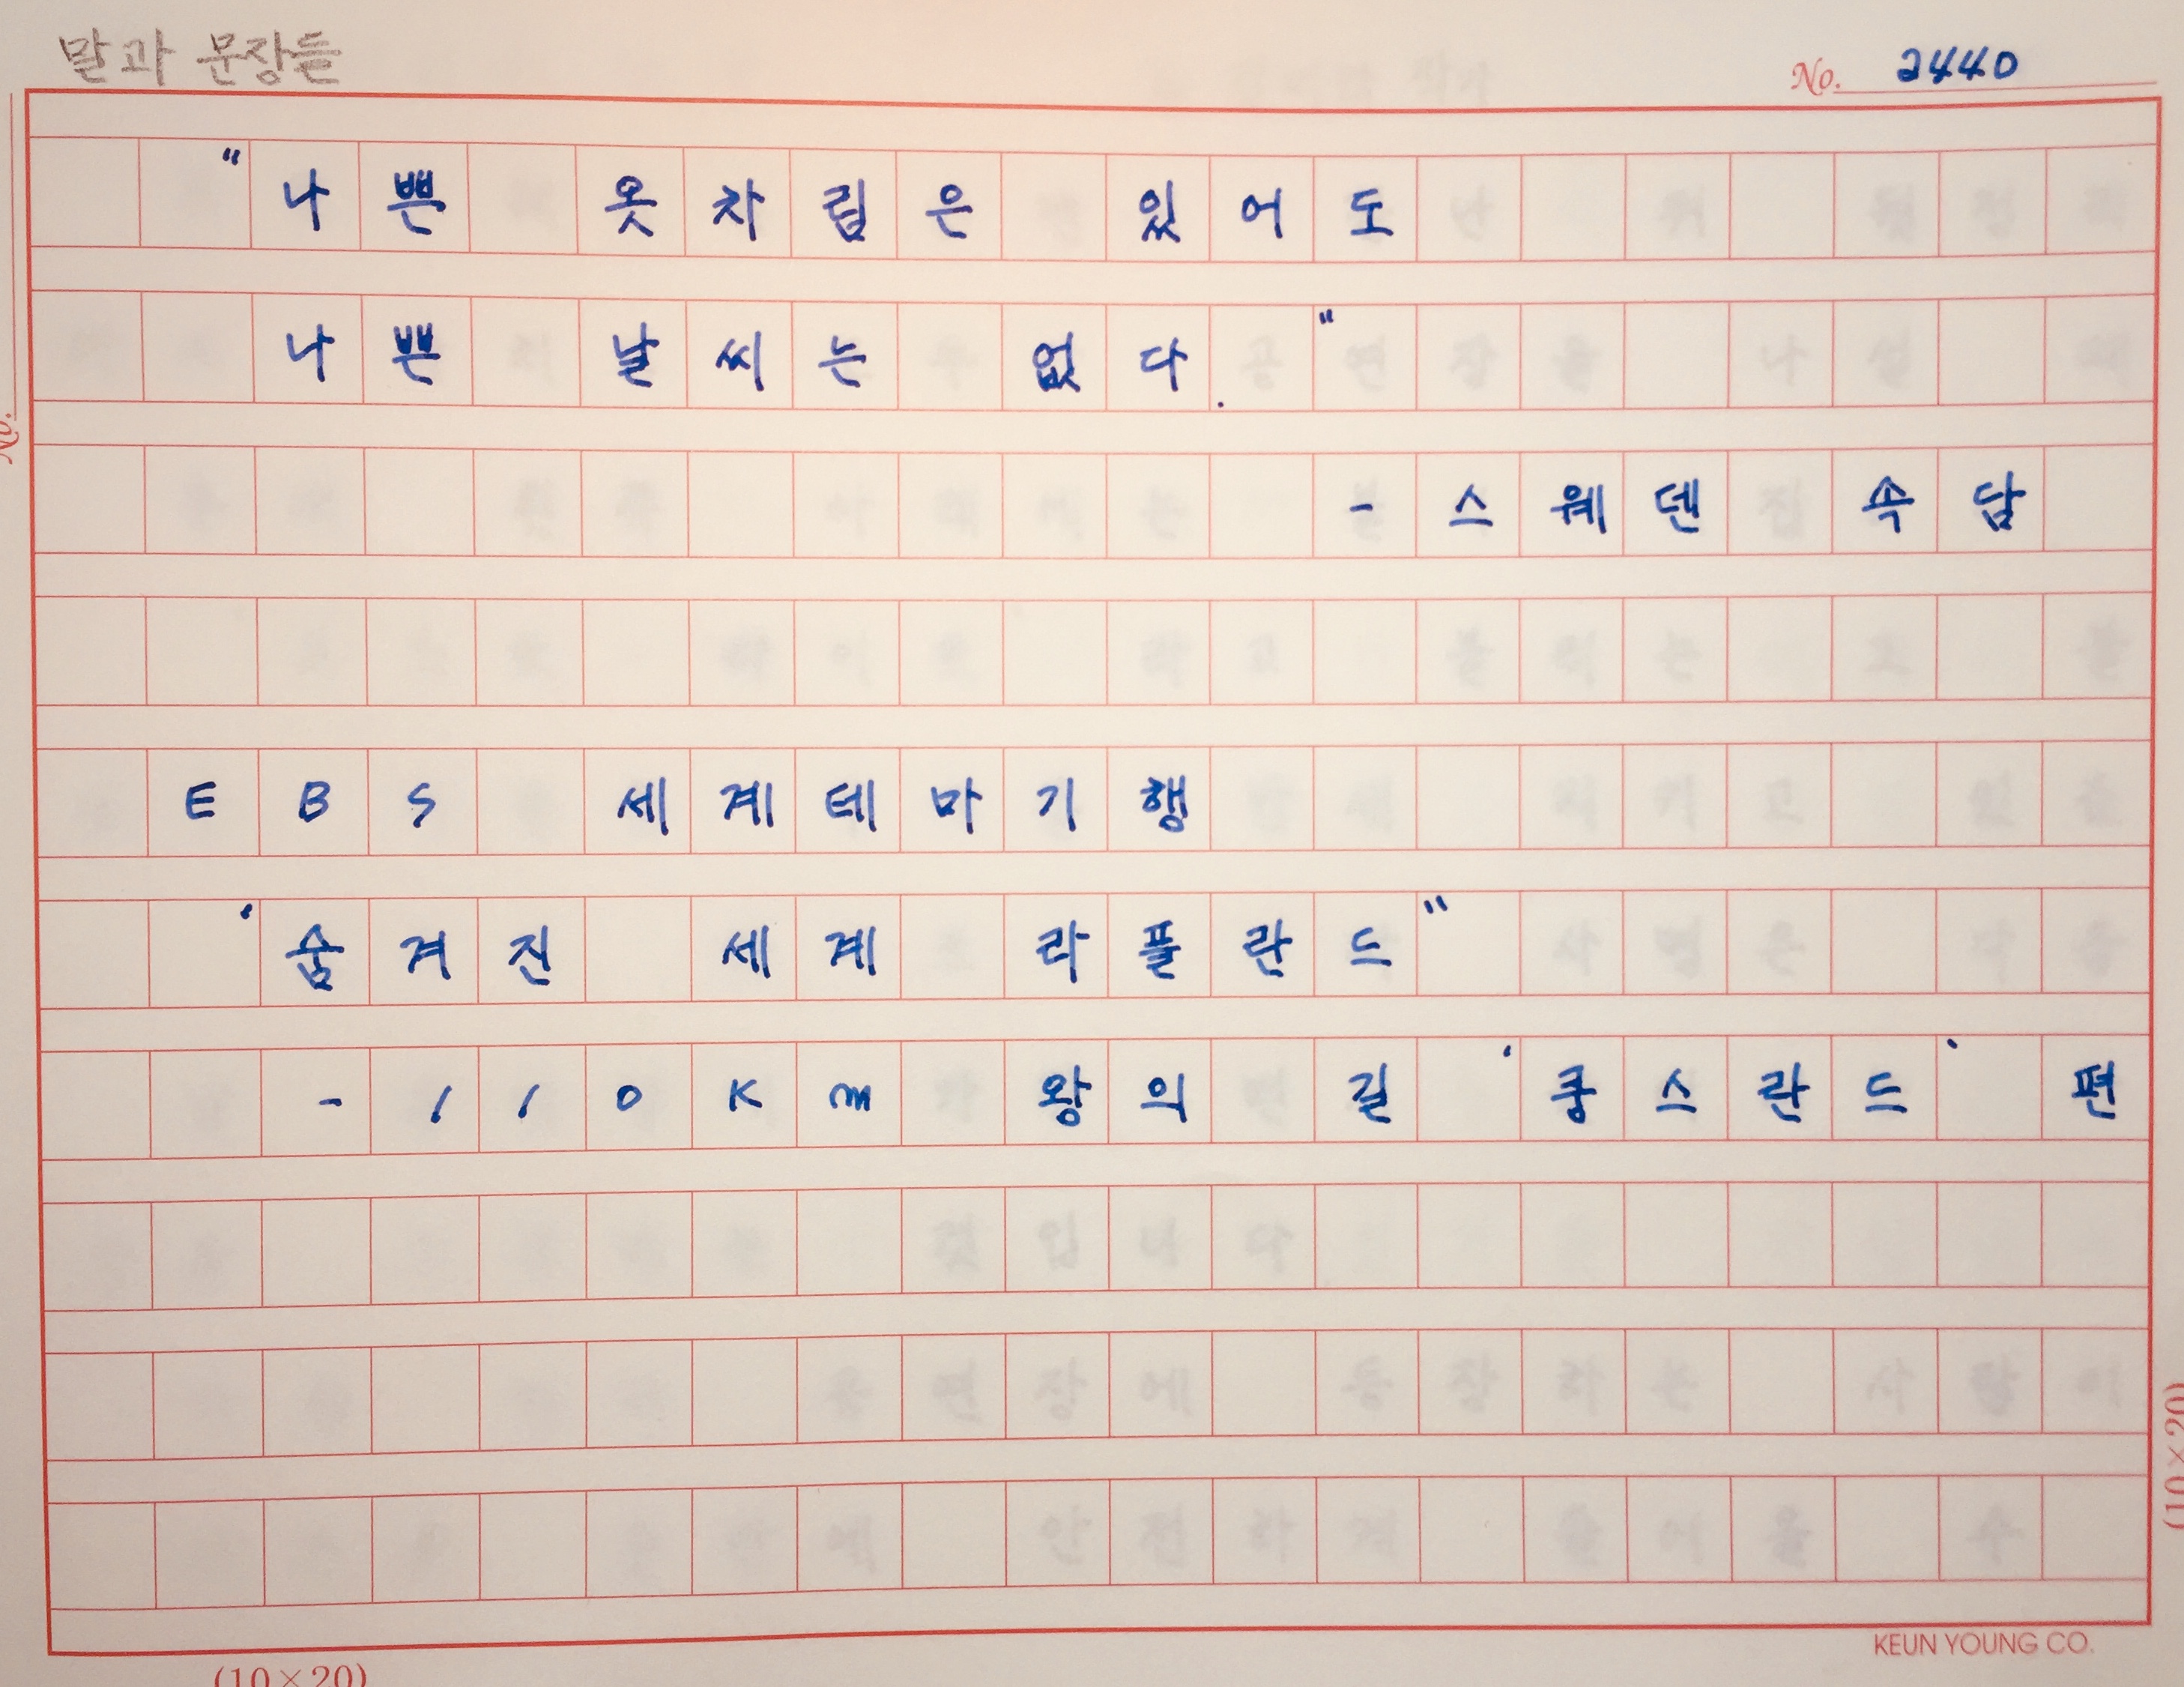 말과 문장들
No. 2440
"나쁜 옷차림은 있어도
나쁜 날씨는 없다."
- 스웨덴 속담
EBS 세계테마기행
'숨겨진 세계 라플란드"
- 110Km 왕의 길 '쿵스란드' 편
KEUN YOUNG CO.
(10×20)
(10×20)
No.